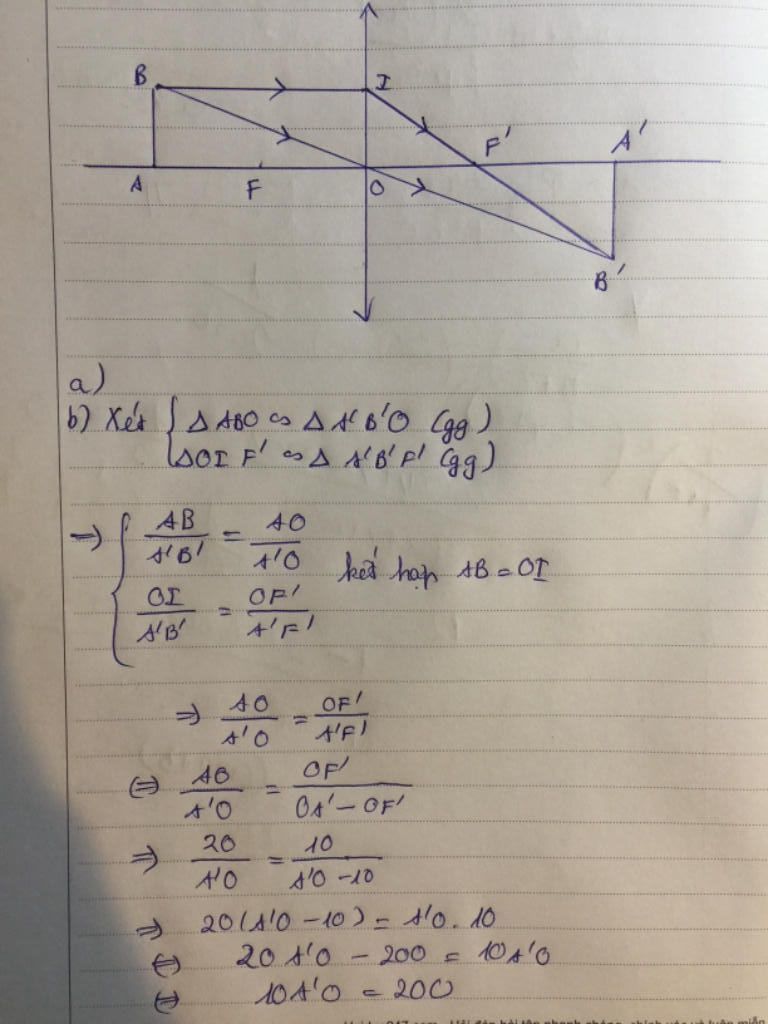 B I F' A'
A F O
B'
a)
b) Xét { Δ ABO ∽ Δ A'B'O (gg)
ΔOI F' ∽ Δ A'B'F' (gg)
=> { AB/A'B' = AO/A'O
kết hợp AB = OI
OI/A'B' = OF'/A'F'
=> AO/A'O = OF'/A'F'
<=> AO/A'O = OF'/OA' - OF'
=> 20/A'O = 10/A'O - 10
=> 20(A'O - 10) = A'O . 10
<=> 20 A'O - 200 = 10A'O
<=> 10A'O = 200